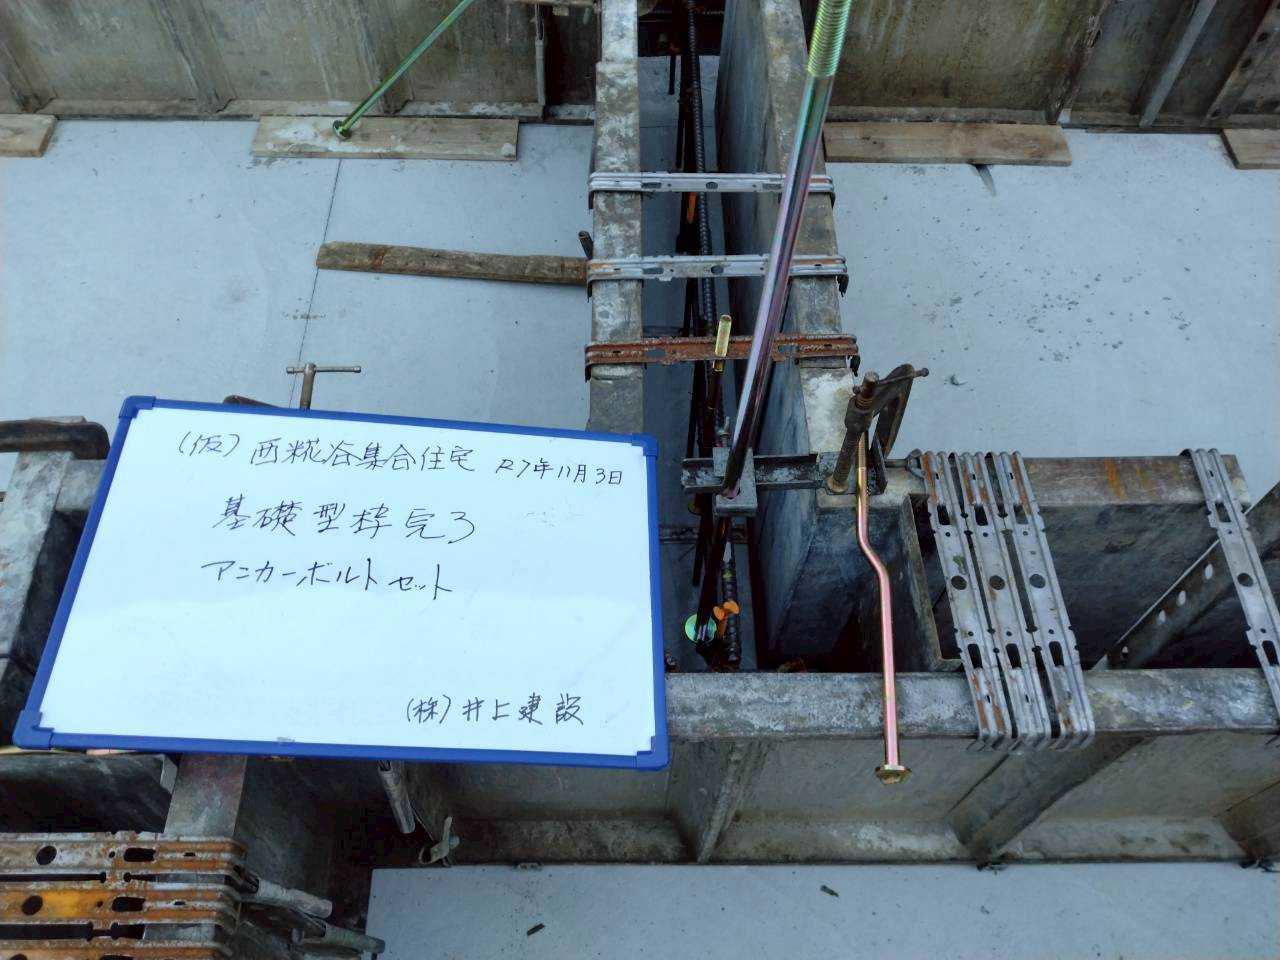 (仮)西糀谷集合住宅 R7年11月3日
基礎型枠完了
アンカーボルトセット
(株)井上建設